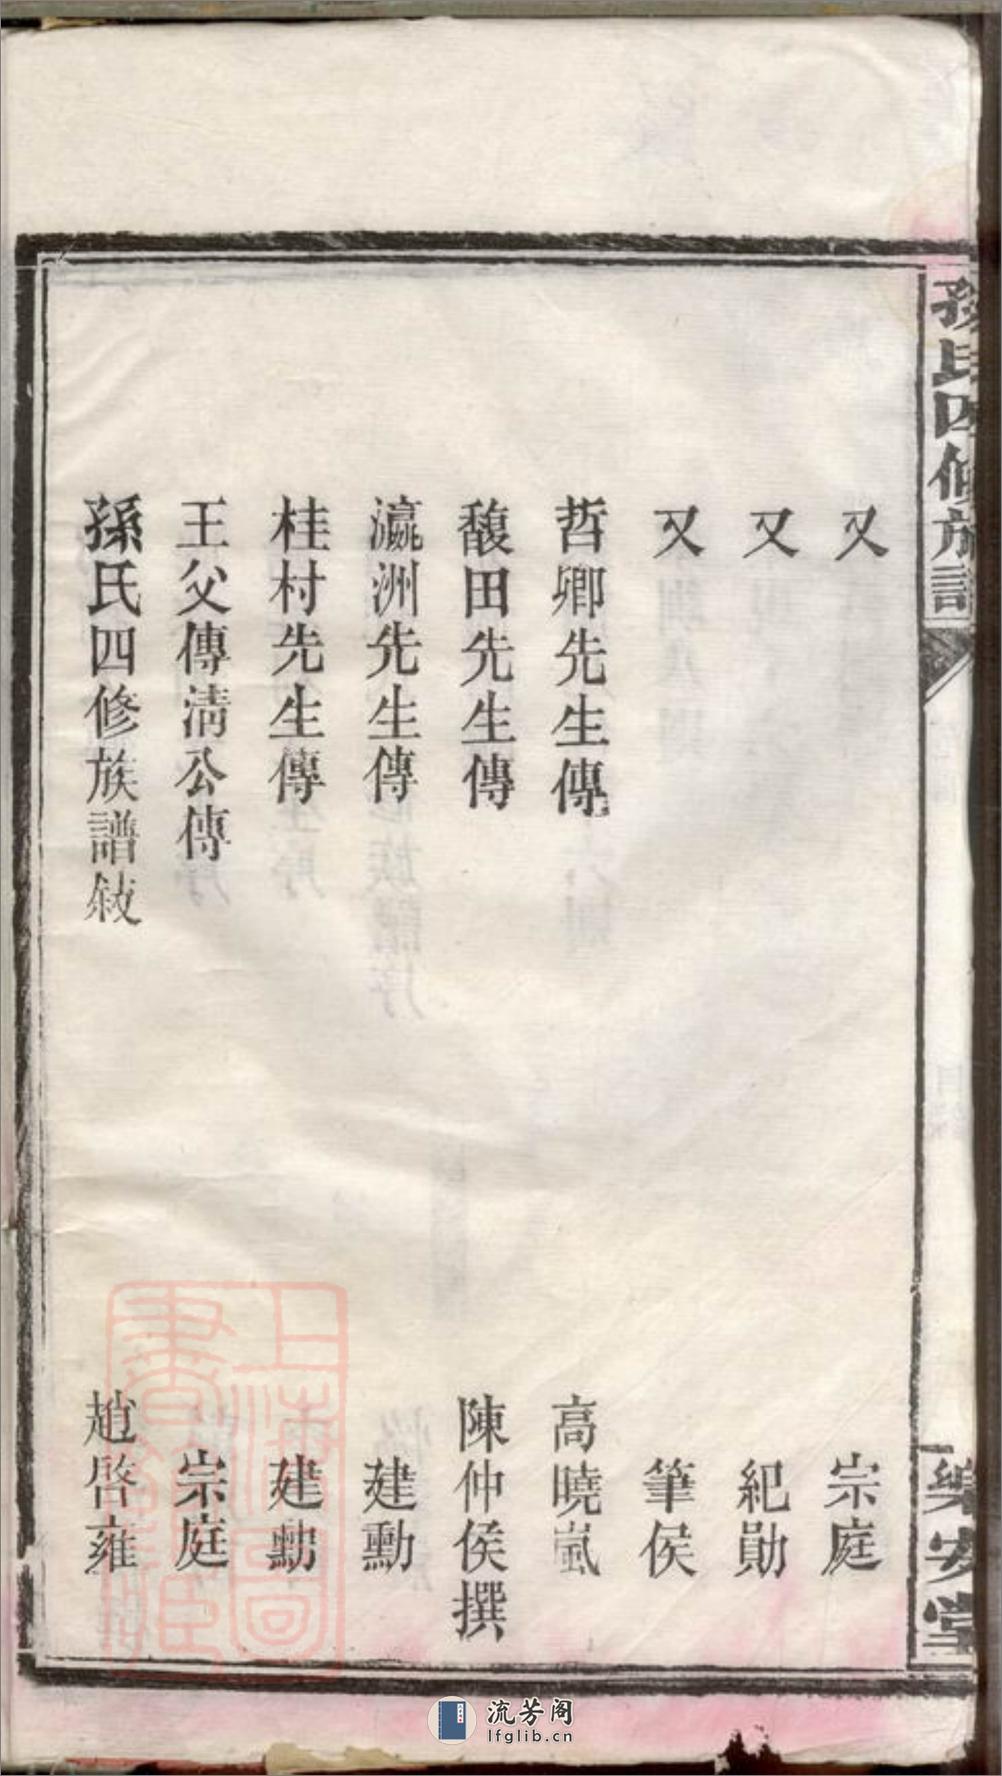 孫氏四修族譜
樂安堂
又 宗庭
又 紀勛
又 筆侯
哲卿先生傳 高曉嵐
馥田先生傳 陳仲侯撰
瀛洲先生傳 建勳
桂村先生傳 建勳
王父傳清公傳 宗庭
孫氏四修族譜敍 趙啓雍
上海圖書館藏
流芳阁
lfglib.cn